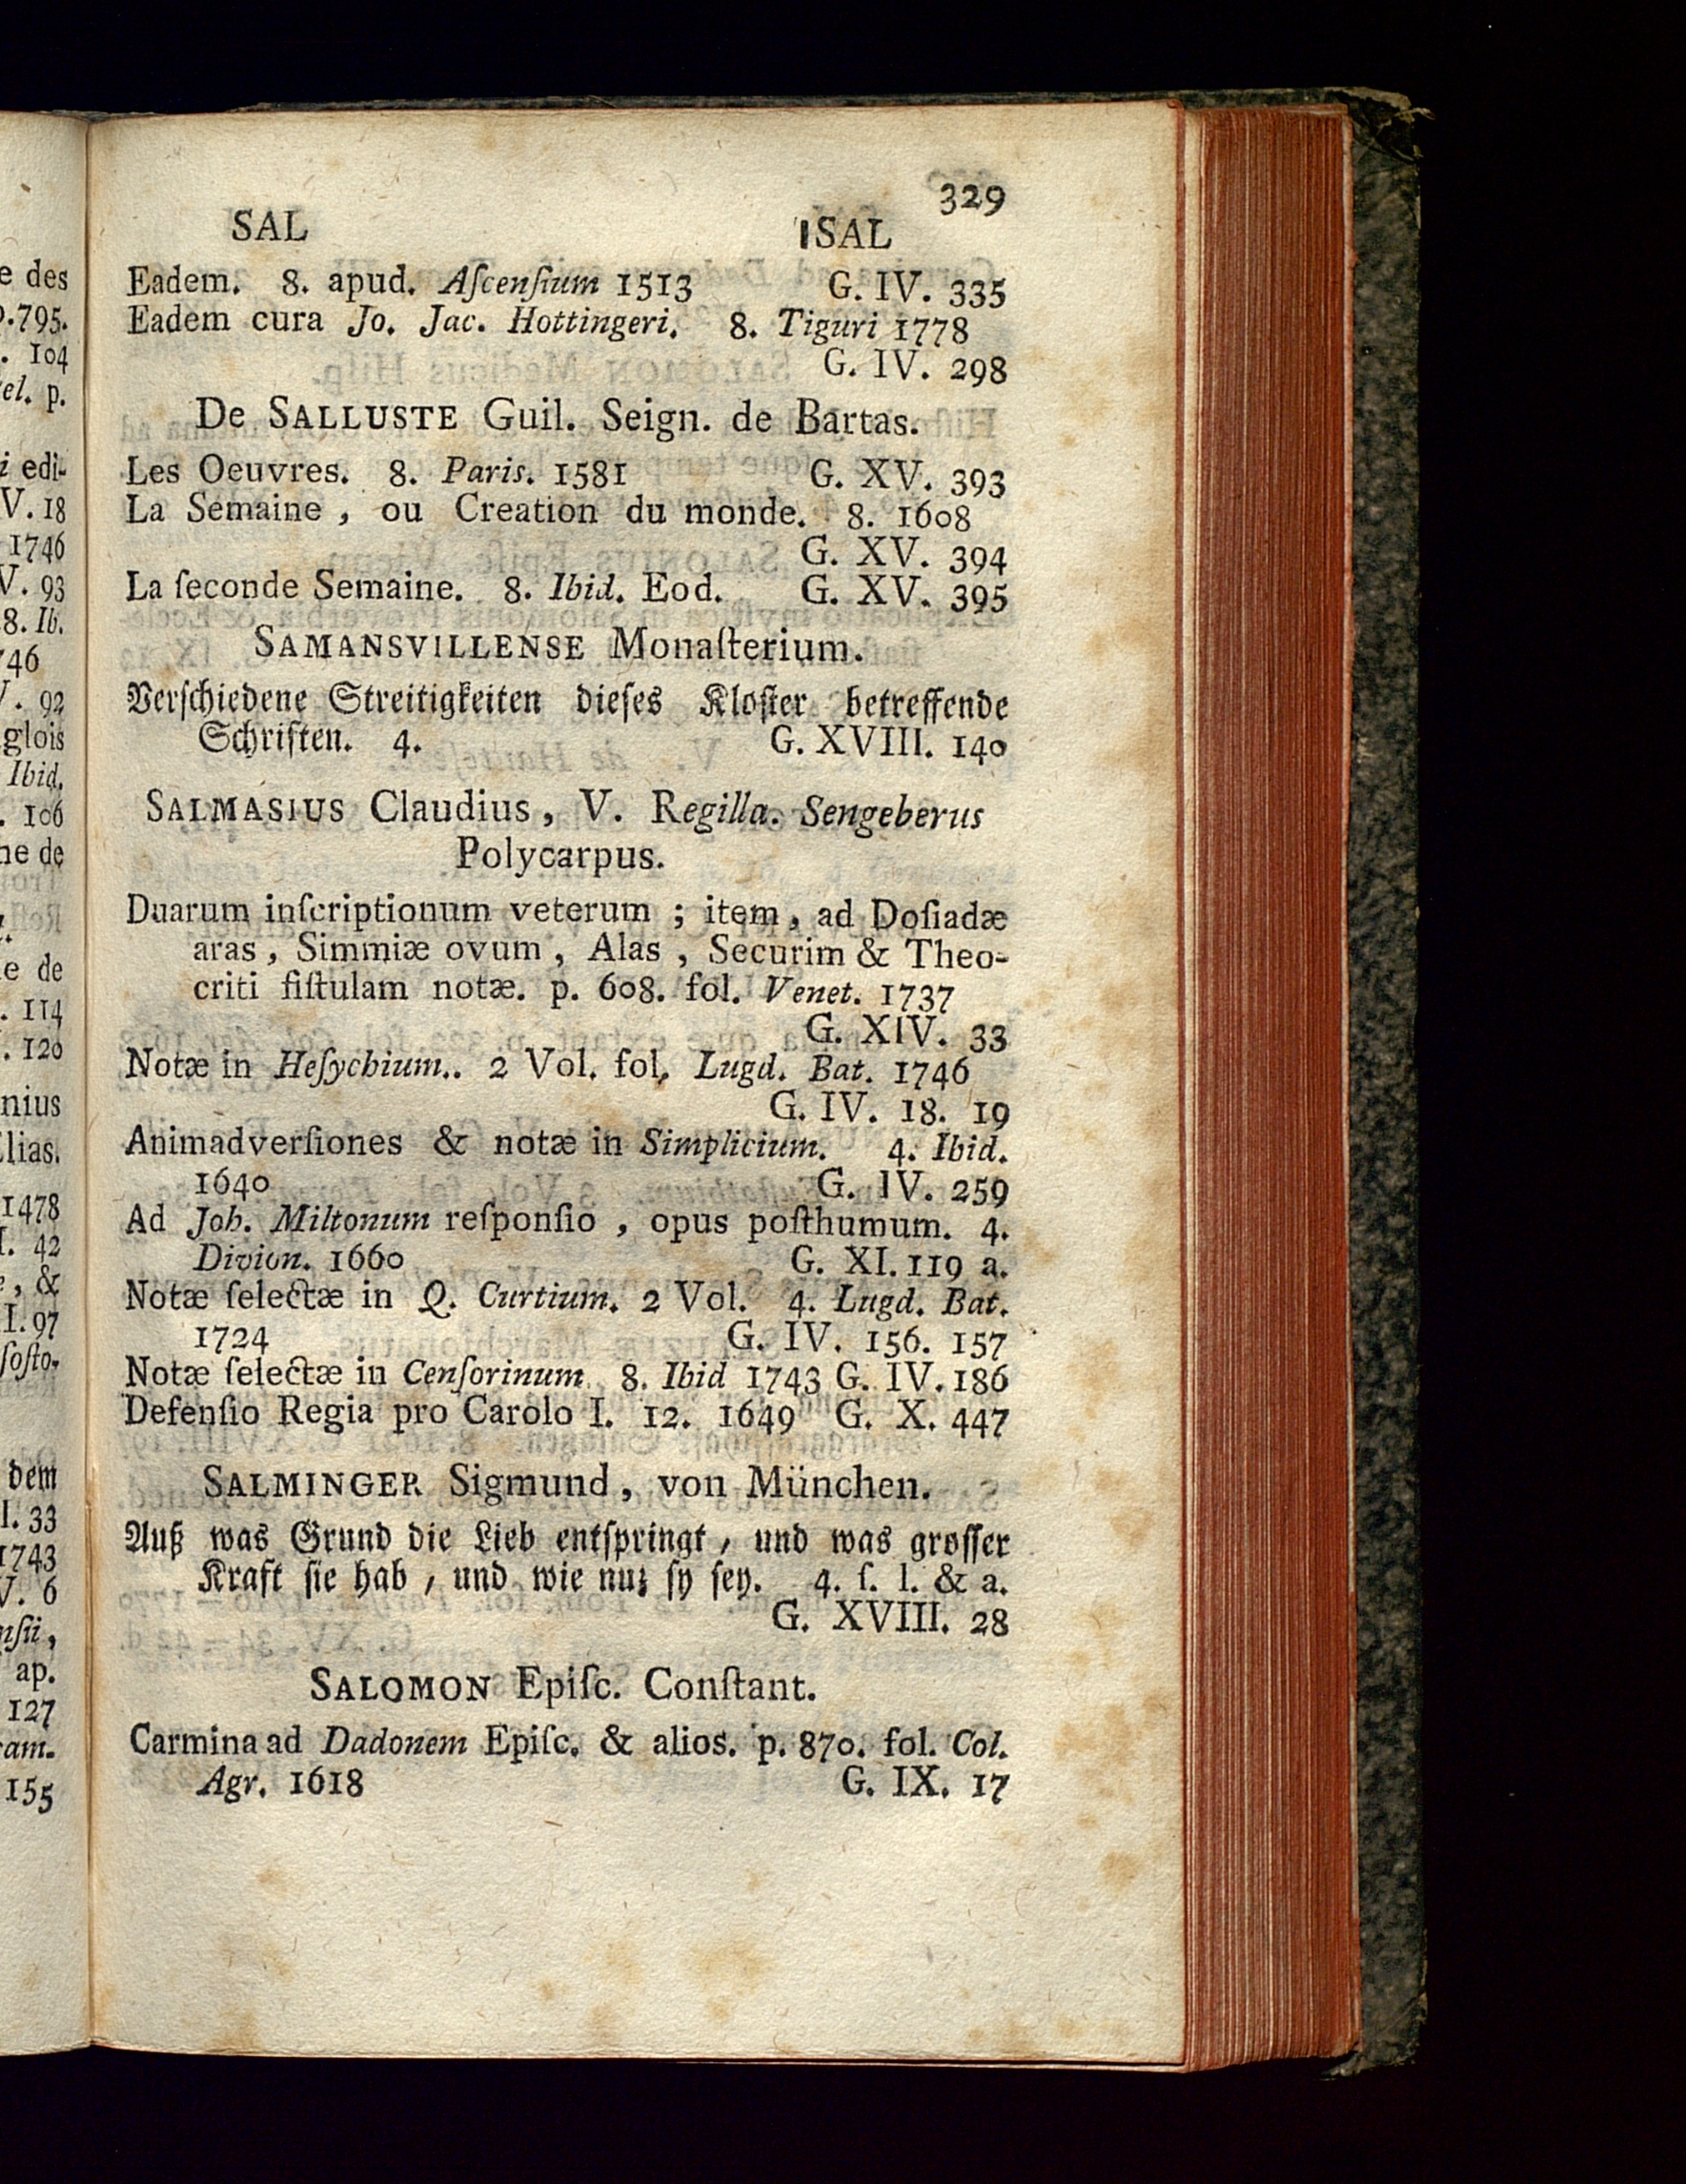 329
SAL SAL
Eadem. 8. apud. Aſcenſium 1513 G. IV. 335
Eadem cura Jo. Jac. Hottingeri. 8. Tiguri 1778
G. IV. 298
De SALLUSTE Guil. Seign. de Bartas.
Les Oeuvres. 8. Paris. 1581 G. XV. 393
La Semaine, ou Creation du monde. 8. 1608
G. XV. 394
La ſeconde Semaine. 8. Ibid. Eod. G. XV. 395
SAMANSVILLENSE Monaſterium.
Verſchiedene Streitigkeiten dieſes Kloſter betreffende
Schriften. 4. G. XVIII. 140
SALMASIUS Claudius, V. Regilla. Sengeberus
Polycarpus.
Duarum inſcriptionum veterum; item, ad Doſiadæ
aras, Simmiæ ovum, Alas, Securim & Theo-
criti fiſtulam notæ. p. 608. fol. Venet. 1737
G. XIV. 33
Notæ in Heſychium.. 2 Vol. fol. Lugd. Bat. 1746
G. IV. 18. 19
Animadverſiones & notæ in Simplicium. 4. Ibid.
1640 G. IV. 259
Ad Joh. Miltonum reſponſio, opus poſthumum. 4.
Divion. 1660 G. XI. 119 a.
Notæ ſelectæ in Q. Curtium. 2 Vol. 4. Lugd. Bat.
1724 G. IV. 156. 157
Notæ ſelectæ in Cenſorinum 8. Ibid 1743 G. IV. 186
Defenſio Regia pro Carolo I. 12. 1649 G. X. 447
SALMINGER Sigmund, von München.
Auß was Grund die Lieb entſpringt, und was groſſer
Kraft ſie hab, und wie nuz ſy ſey. 4. ſ. l. & a.
G. XVIII. 28
SALOMON Epiſc. Conſtant.
Carmina ad Dadonem Epiſc. & alios. p. 870. fol. Col.
Agr. 1618 G. IX. 17